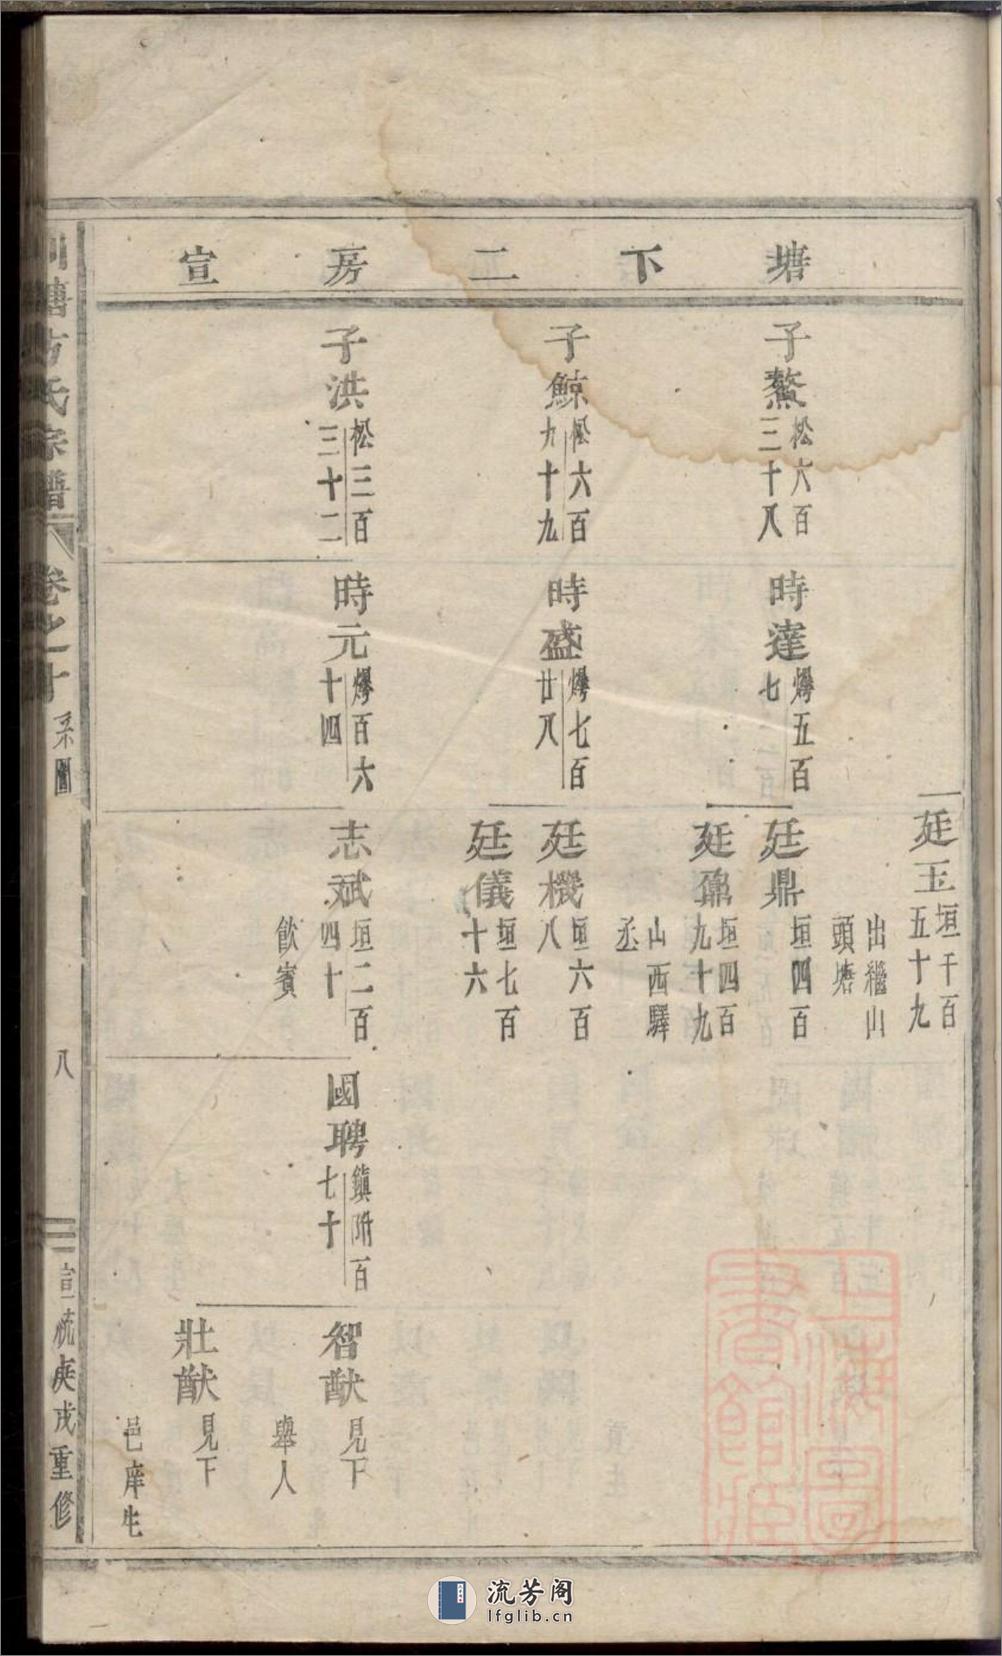 塘下二房宣
子鰲松六百三十八
子鯨松六百九十九
子洪松三百三十二
時達爗五百七
時盛爗七百廿八
時元爗百六十四
廷玉垣千百五十九
出繼山頭塘
廷鼎垣四百
廷鼐垣四百九十九
山西驛丞
廷機垣六百八
廷儀垣七百十六
志斌垣二百四十
飲賓
國聘鎮附百七十
智猷見下
舉人
壯猷見下
邑庠生
塘方氏宗譜
卷之十系圖
八
宣統庚戌重修
上海圖書館藏
流芳阁
lfglib.cn